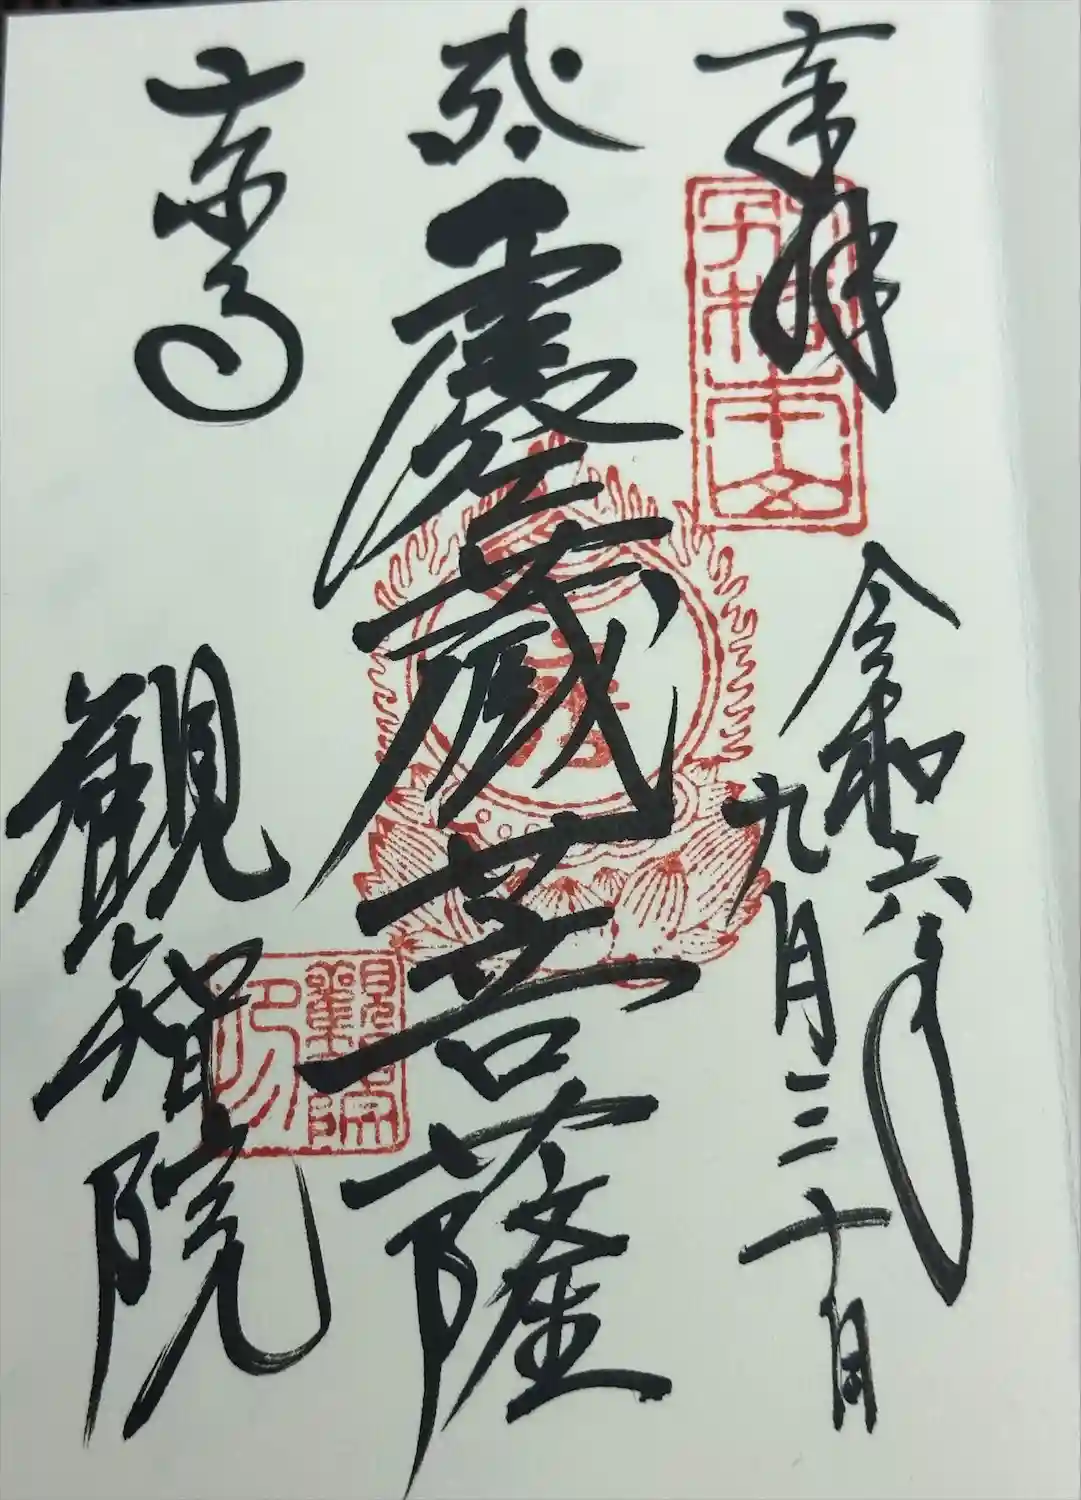 奉拝
令和六年
九月三十日
虚空蔵菩薩
京都
観智院